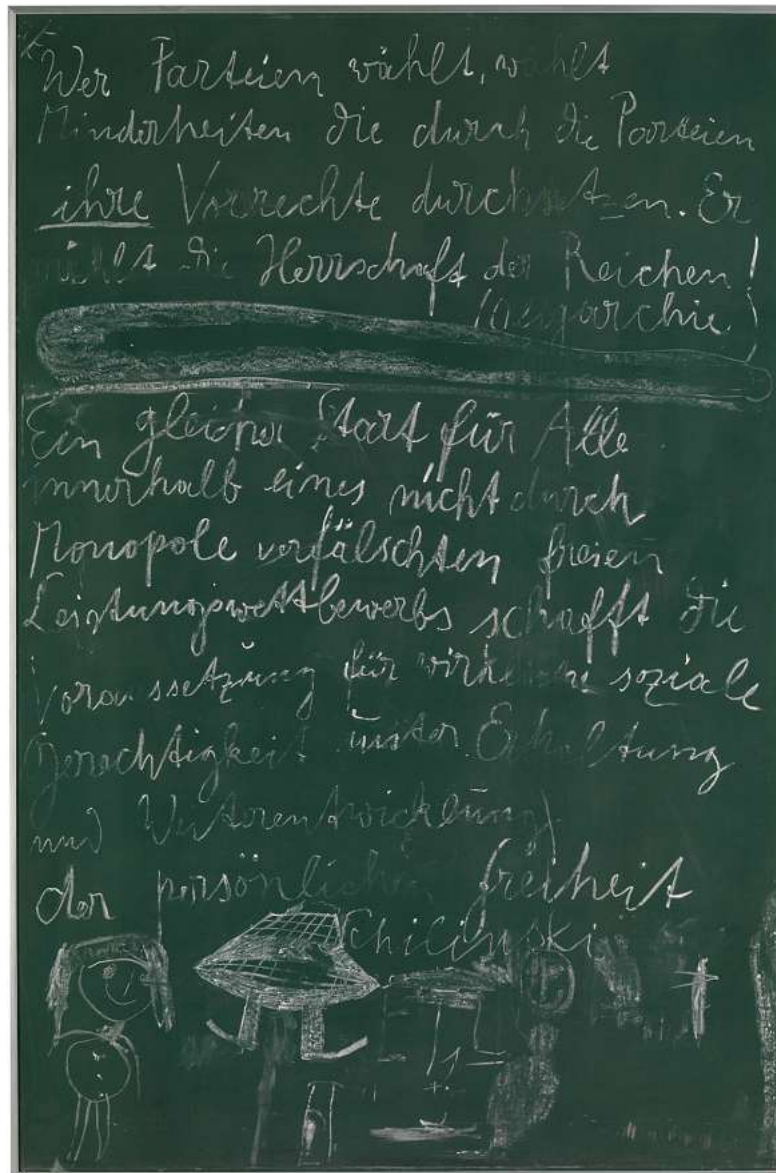 Wer Parteien wählt, wählt
Minderheiten die durch die Parteien
ihre Vorrechte durchsetzen. Er
wählt die Herrschaft der Reichen!
(Oligarchie)
Ein gleicher Start für Alle
innerhalb eines nicht durch
Monopole verfälschten freien
Leistungswettbewerbs schafft die
Voraussetzung für wirkliche soziale
Gerechtigkeit unter Erhaltung
und Weiterentwicklung
der persönlichen Freiheit
Schilinski